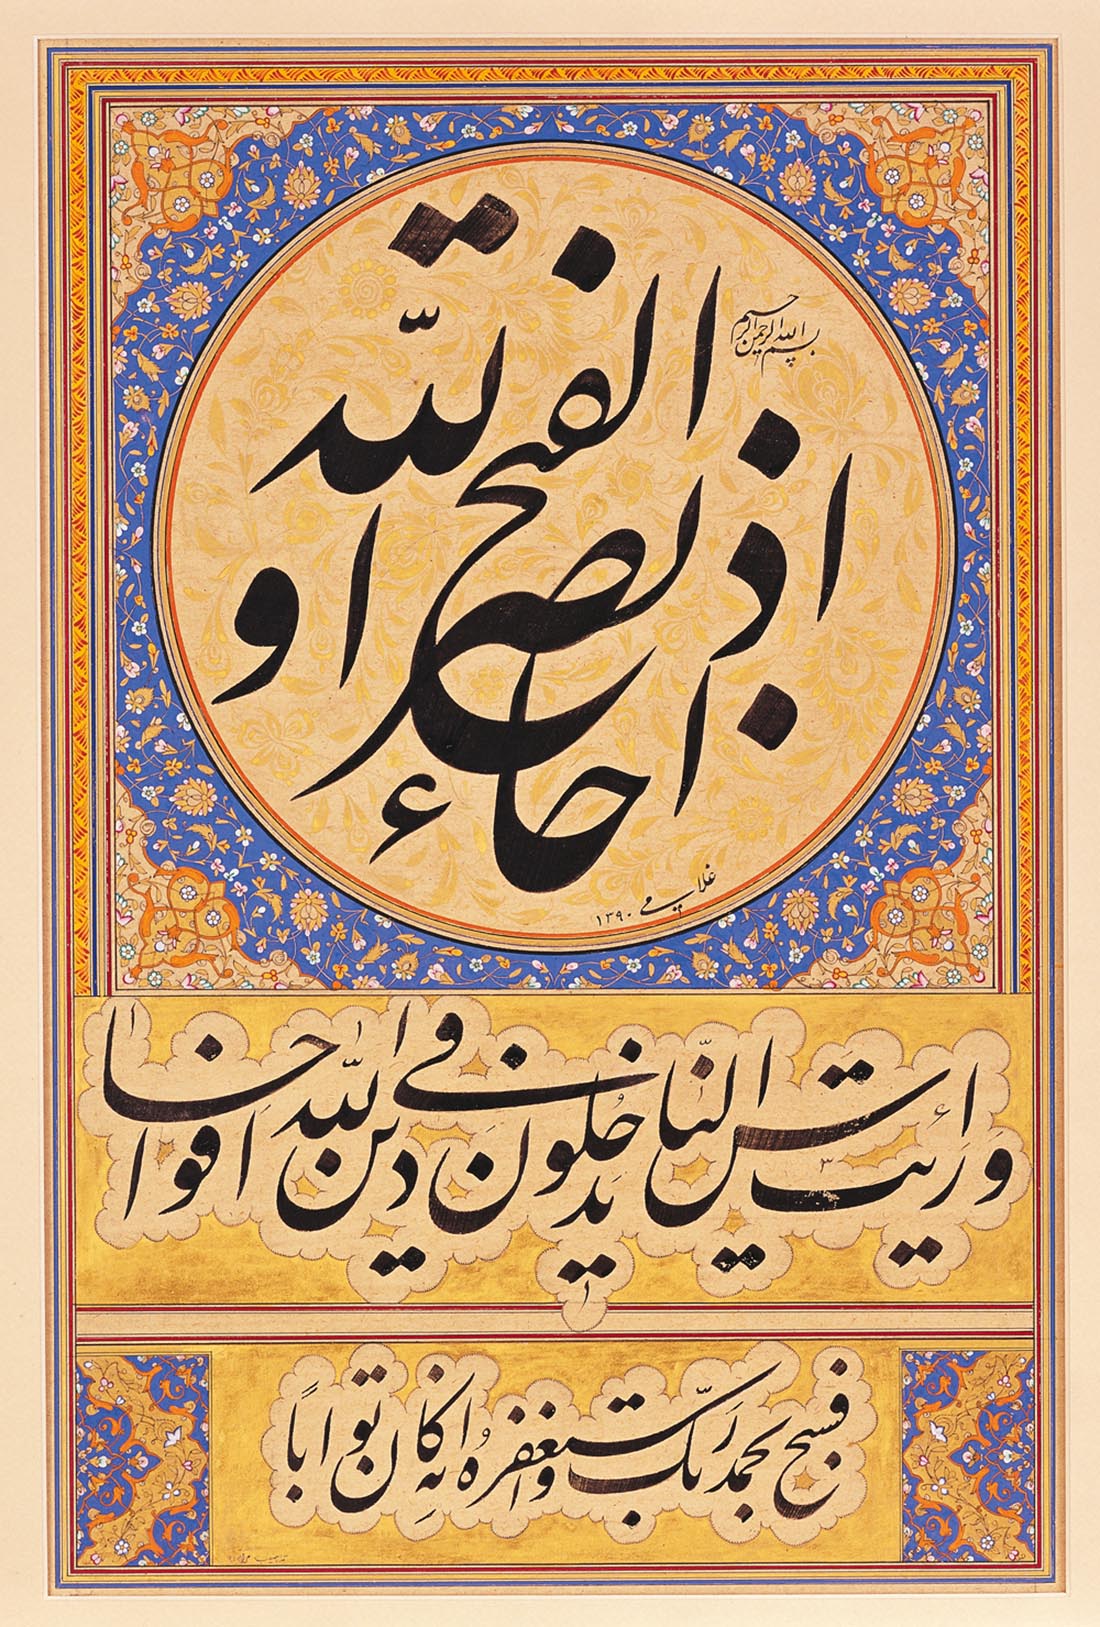 بسم الله الرحمن الرحیم
اذا جاء نصر الله و الفتح
غلامی ۱۳۹۰
و رأیت الناس یدخلون فی دین الله افواجا
فسبح بحمد ربک و استغفره انه کان تواباً